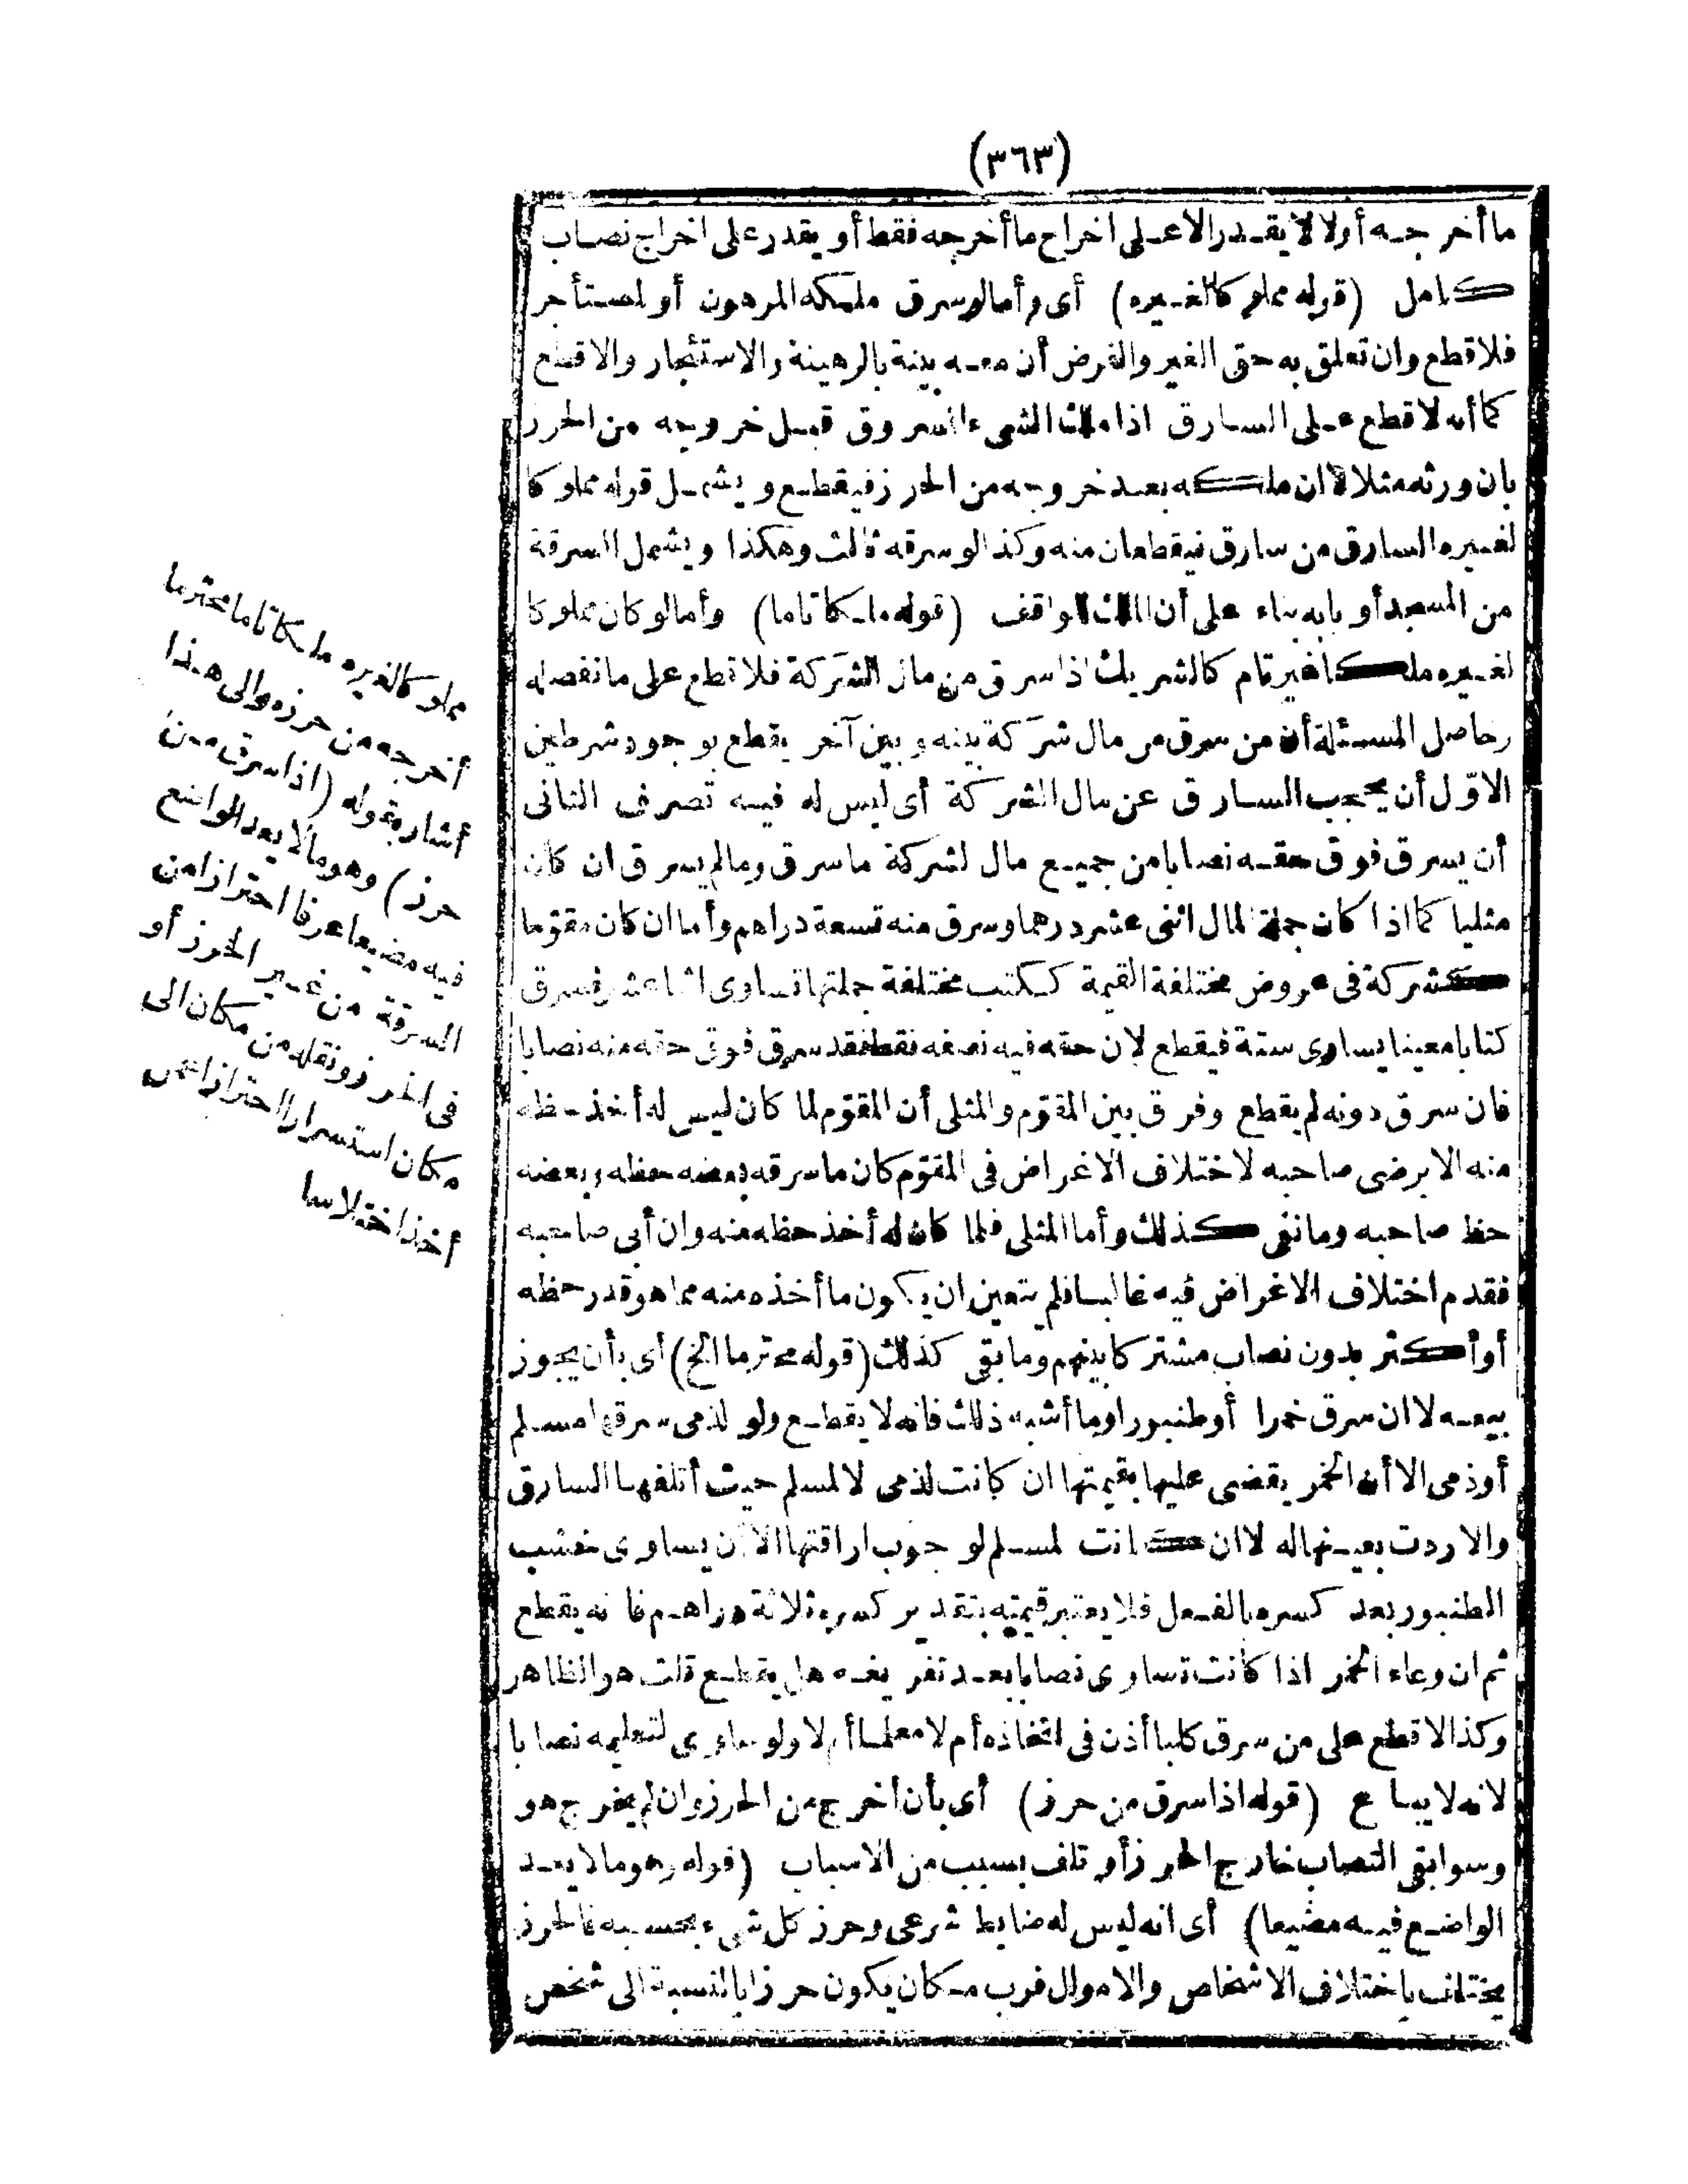 (٣٦٣)
ما أخرجه أولا لا يقدر الا على اخراج ما أخرجه فقط أو يقدر على اخراج نصاب
كامل (قوله مملوكا لغيره) أى وأما لو سرق ملكه المرهون أو المستأجر
فلا قطع وان تعلق به حق الغير والفرض أن معه بينة بالرهينة والاستئجار والا قطع
كما أنه لا قطع على السارق اذا ملك الشىء المسروق قبل خروجه من الحرز
بان ورثه مثلا لا ان ملكه بعد خروجه من الحرز فيقطع ويشمل قوله مملوكا
لغيره السارق من سارق فيقطعان منه وكذا لو سرقه ثالث وهكذا ويشمل السرقة
من المسجد أو بابه بناء على أن الملك للواقف (قوله ملكا تاما) وأما لو كان مملوكا
لغيره ملكا غير تام كالشريك اذا سرق من مال الشركة فلا قطع على ما نفصله
وحاصل المسئلة أن من سرق من مال شركة بينه وبين آخر يقطع بوجود شرطين
الاوّل أن يحجب السارق عن مال الشركة أى ليس له فيه تصرف الثانى
أن يسرق فوق حقه نصابا من جميع مال الشركة ما سرق وما لم يسرق ان كان
مثليا كما اذا كان جملة المال اثنى عشر درهما وسرق منه تسعة دراهم وأما ان كان مقوّما
كشركة فى عروض مختلفة القيمة ككتب مختلفة جملتها تساوى اثنا عشر فسرق
كتابا معينا يساوى ستة فيقطع لان حقه فيه نصفه فقط فقد سرق فوق حقه منه نصابا
فان سرق دونه لم يقطع وفرق بين المقوّم والمثلى أن المقوّم لما كان ليس له أخذ حظه
منه الا برضى صاحبه لاختلاف الاغراض فى المقوّم كان ما سرقه بعضه حظه وبعضه
حظ صاحبه وما نقى كذلك وأما المثلى فلما كان له أخذ حظه منه وان أبى صاحبه
فقدم اختلاف الاغراض فيه غالبا فلم يتعين ان يكون ما أخذه منه مما هو قدر حظه
أو أكثر بدون نصاب مشتركا بينهم وما بقى كذلك (قوله محترما الخ) أى بأن يجوز
بيعه لا ان سرق خمرا أو طنبورا وما أشبه ذلك فانه لا يقطع ولو لذمى سرقها مسلم
أو ذمى الا أن الخمر يقضى عليها بقيمتها ان كانت لذمى لا لمسلم حيث أتلفها السارق
والا ردت بعينها له لا ان كانت لمسلم لوجوب اراقتها الا أن يساوى خشب
الطنبور بعد كسره بالفعل فلا يعتبر قيمته بتقدير كسره ثلاثة دراهم فانه يقطع
ثم ان وعاء الخمر اذا كانت تساوى نصابا بعد تفريغه هل يقطع قلت هو الظاهر
وكذا لا قطع على من سرق كلبا أذن فى اتخاذه أم لا معلما أم لا ولو ساوى لتعليمه نصابا
لانه لا يباع (قوله اذا سرق من حرز) أى بأن أخرج من الحرز وان لم يخرج هو
وسوا بقى النصاب خارج الحرز أو تلف بسبب من الاسباب (قوله وهو ما لا يعد
الواضع فيه مضيعا) أى انه ليس له ضابط شرعى وحرز كل شىء بحسبه فالحرز
يختلف باختلاف الاشخاص والاموال فرب مكان يكون حرزا بالنسبة الى شخص
مملوكا لغيره ملكا تاما محترما
أخرجه من حرزه والى هذا
أشار بقوله (اذا سرق من
حرز) وهو ما لا يعد الواضع
فيه مضيعا عرفا احترازا من
السرقة من غير الحرز أو
فى الحرز ونقله من مكان الى
مكان استسرارا احترازا عمن
أخذ اختلاسا